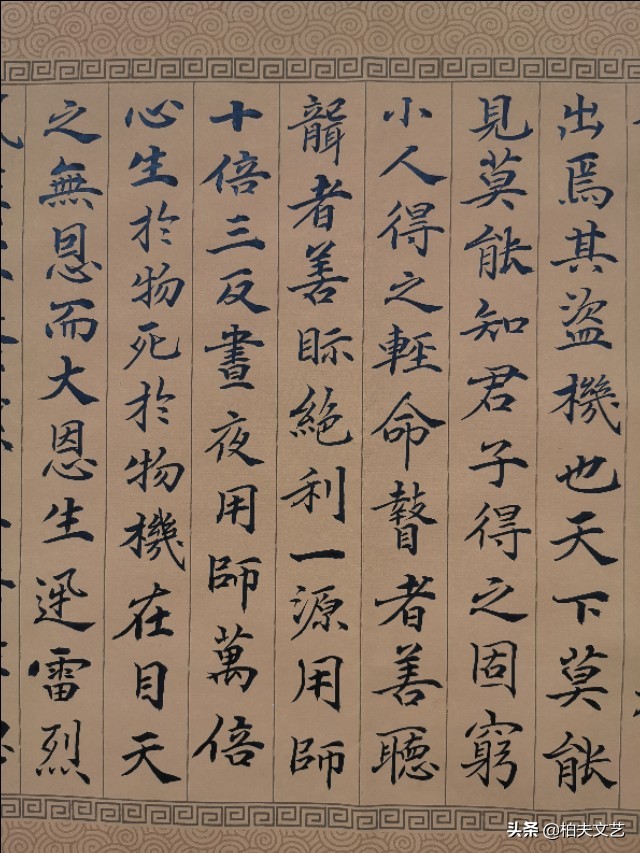 出焉其盜機也天下莫能
見莫能知君子得之固窮
小人得之輕命瞽者善聽
聾者善眎絕利一源用師
十倍三反晝夜用師萬倍
心生於物死於物機在目天
之無恩而大恩生迅雷烈
头条 @柏夫文艺